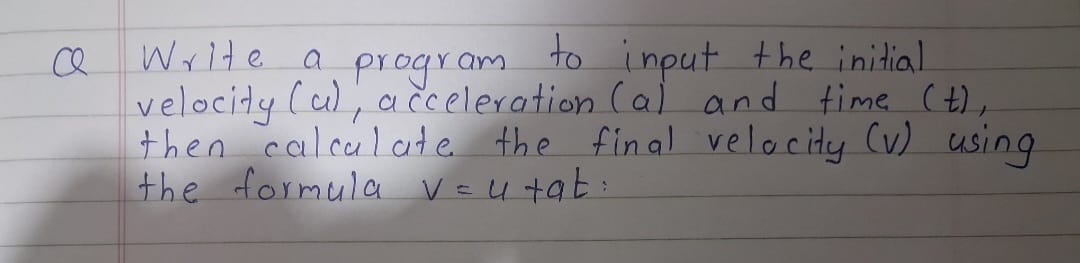 Q Write a program to input the initial
velocity (u), acceleration (a) and time (t),
then calculate the final velocity (v) using
the formula v = u + at: